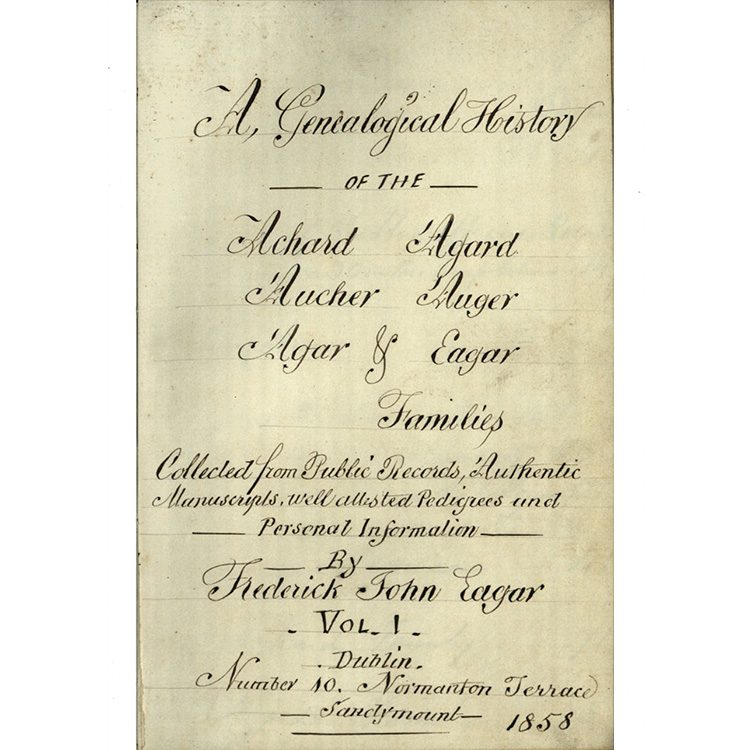 A, Genealogical History
OF THE
Achard Agard
Aucher Auger
Agar & Eagar
Families
Collected from Public Records, Authentic
Manuscripts, well attested Pedigrees and
Personal Information
By
Frederick John Eagar
- VOL. 1 -
. Dublin .
Number 10. Normanton Terrace
Sandymount
1858